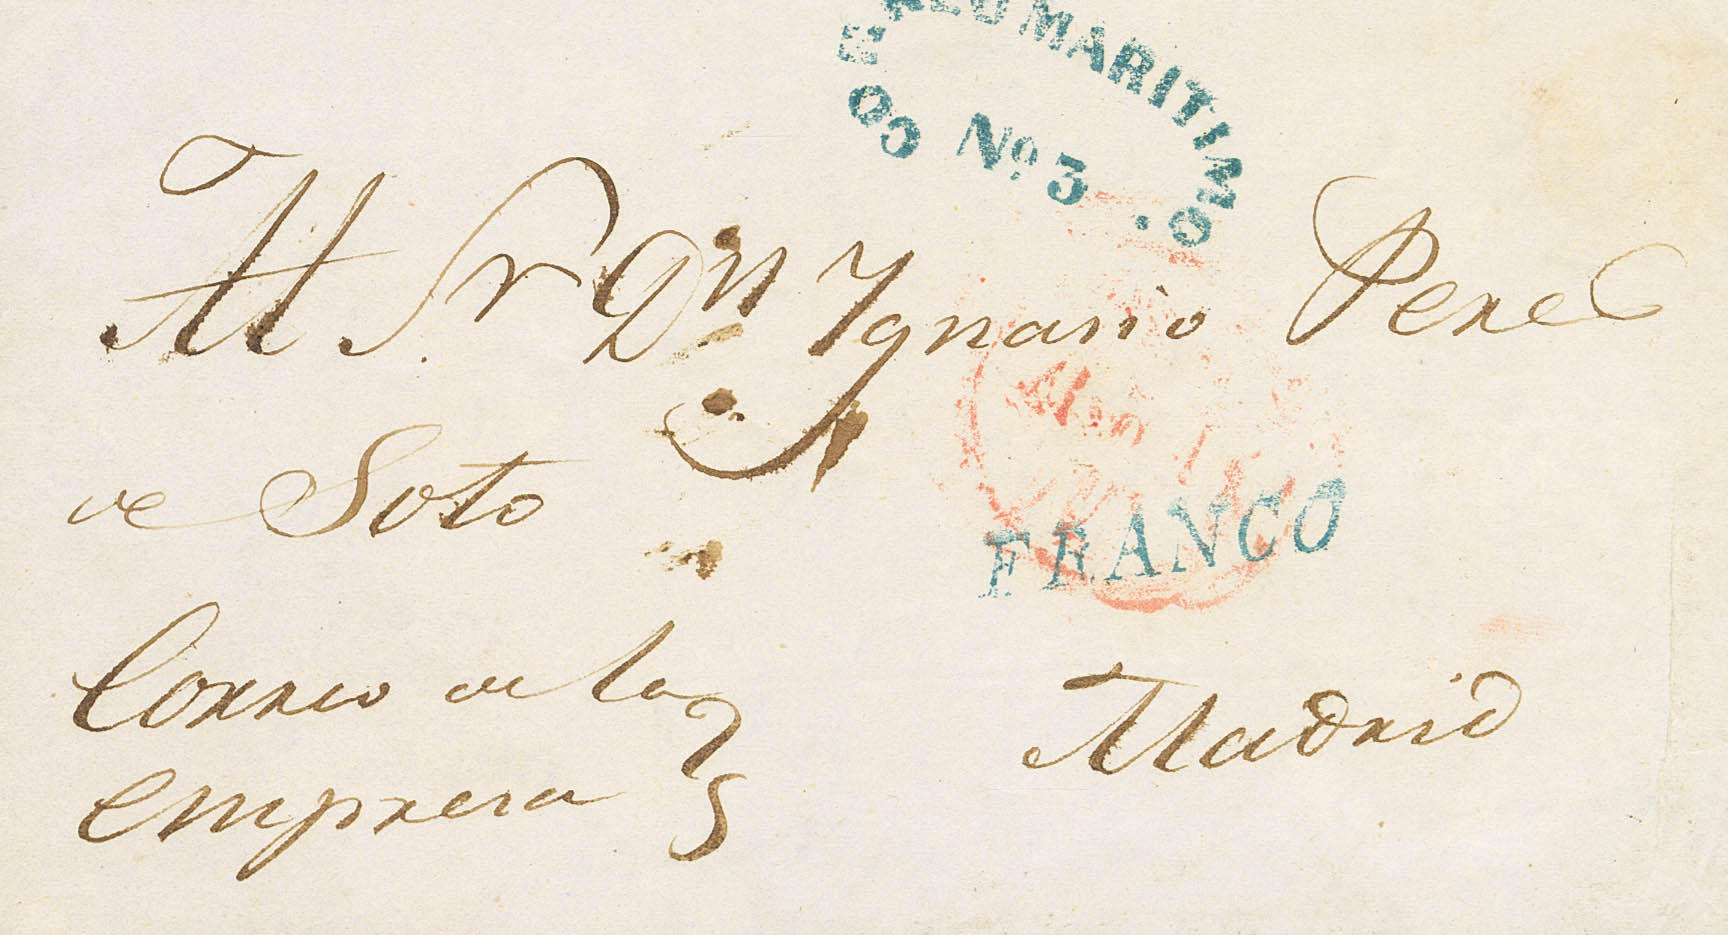 CORREO MARITIMO.
Nº 3
Al Sr Dn Ygnasio Perez
de Soto
FRANCO
Correo de la
empresa
Madrid